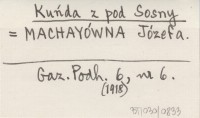 Kuńda z pod Sosny
= MACHAYÓWNA Józefa.
Gaz. Podh. 6, nr 6.
(1918)